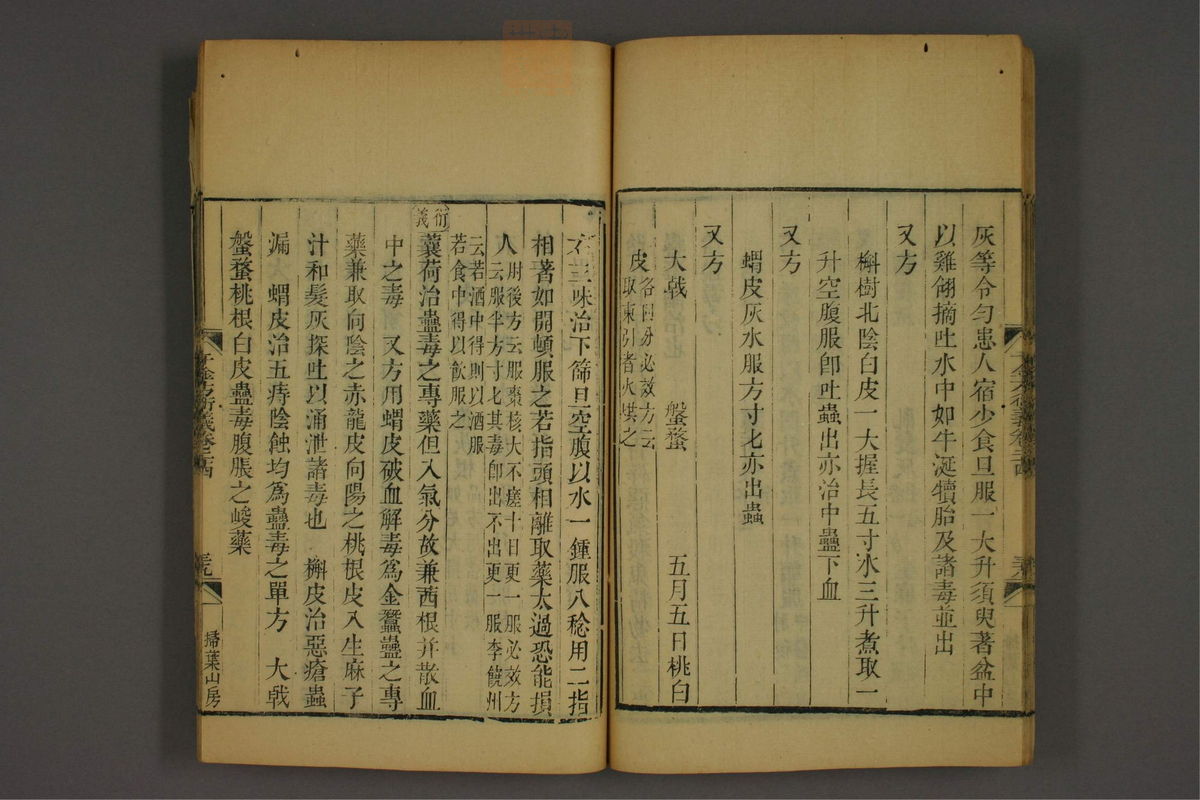 灰等令勻患人宿少食旦服一大升須臾著盆中
以雞翎摘吐水中如牛涎犢胎及諸毒並出
又方
槲樹北陰白皮一大握長五寸水三升煮取一
升空腹服卽吐蟲出亦治中蠱下血
又方
蝟皮灰水服方寸匕亦出蟲
又方
大戟 盤蝥 五月五日桃白
皮各四分必效方云
取東引者火烘之
千金方衍義卷二十四
右三味治下篩旦空腹以水一鍾服八稔用二指
相著如開頓服之若指頭相離取藥太過恐能損
人肘後方云服棗核大不瘥十日更一服必效方
云服半方寸匕其毒卽出不出更一服李饒州
云若酒中得則以酒服
若食中得以飮服之
衍義
蘘荷治蠱毒之專藥但入氣分故兼茜根并散血
中之毒 又方用蝟皮破血解毒爲金蠶蠱之專
藥兼取向陰之赤龍皮向陽之桃根皮入生麻子
汁和髮灰探吐以涌泄諸毒也 槲皮治惡瘡蟲
漏 蝟皮治五痔陰蝕均爲蠱毒之單方 大戟
盤蝥桃根白皮蠱毒腹脹之峻藥
千金方衍義卷二十四
掃葉山房